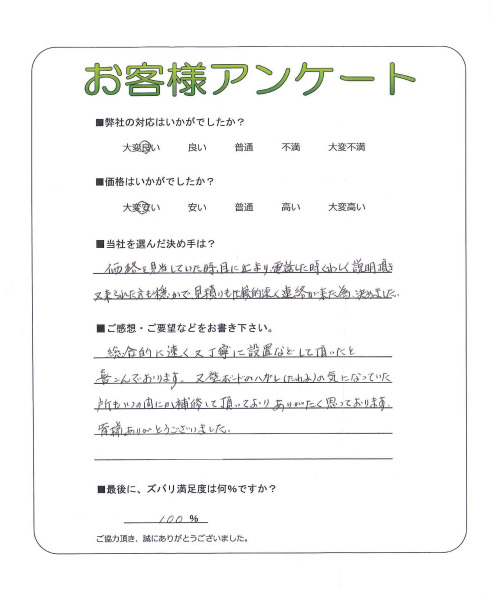 お客様アンケート
■弊社の対応はいかがでしたか？
大変良い 良い 普通 不満 大変不満
■価格はいかがでしたか？
大変安い 安い 普通 高い 大変高い
■当社を選んだ決め手は？
価格を見当していた時、目に止まり電話した時くわしく説明頂き
又来られた方も穏かで見積りも比較的速く連絡が来た為、決めました。
■ご感想・ご要望などをお書き下さい。
総合的に速く又丁寧に設置などして頂いたと
喜こんでおります。又壁ボードのハガレ(たわみ)の気になっていた
所もいつの間にか補修して頂いており ありがたく思っております。
皆様ありがとうございました。
■最後に、ズバリ満足度は何％ですか？
100 %
ご協力頂き、誠にありがとうございました。